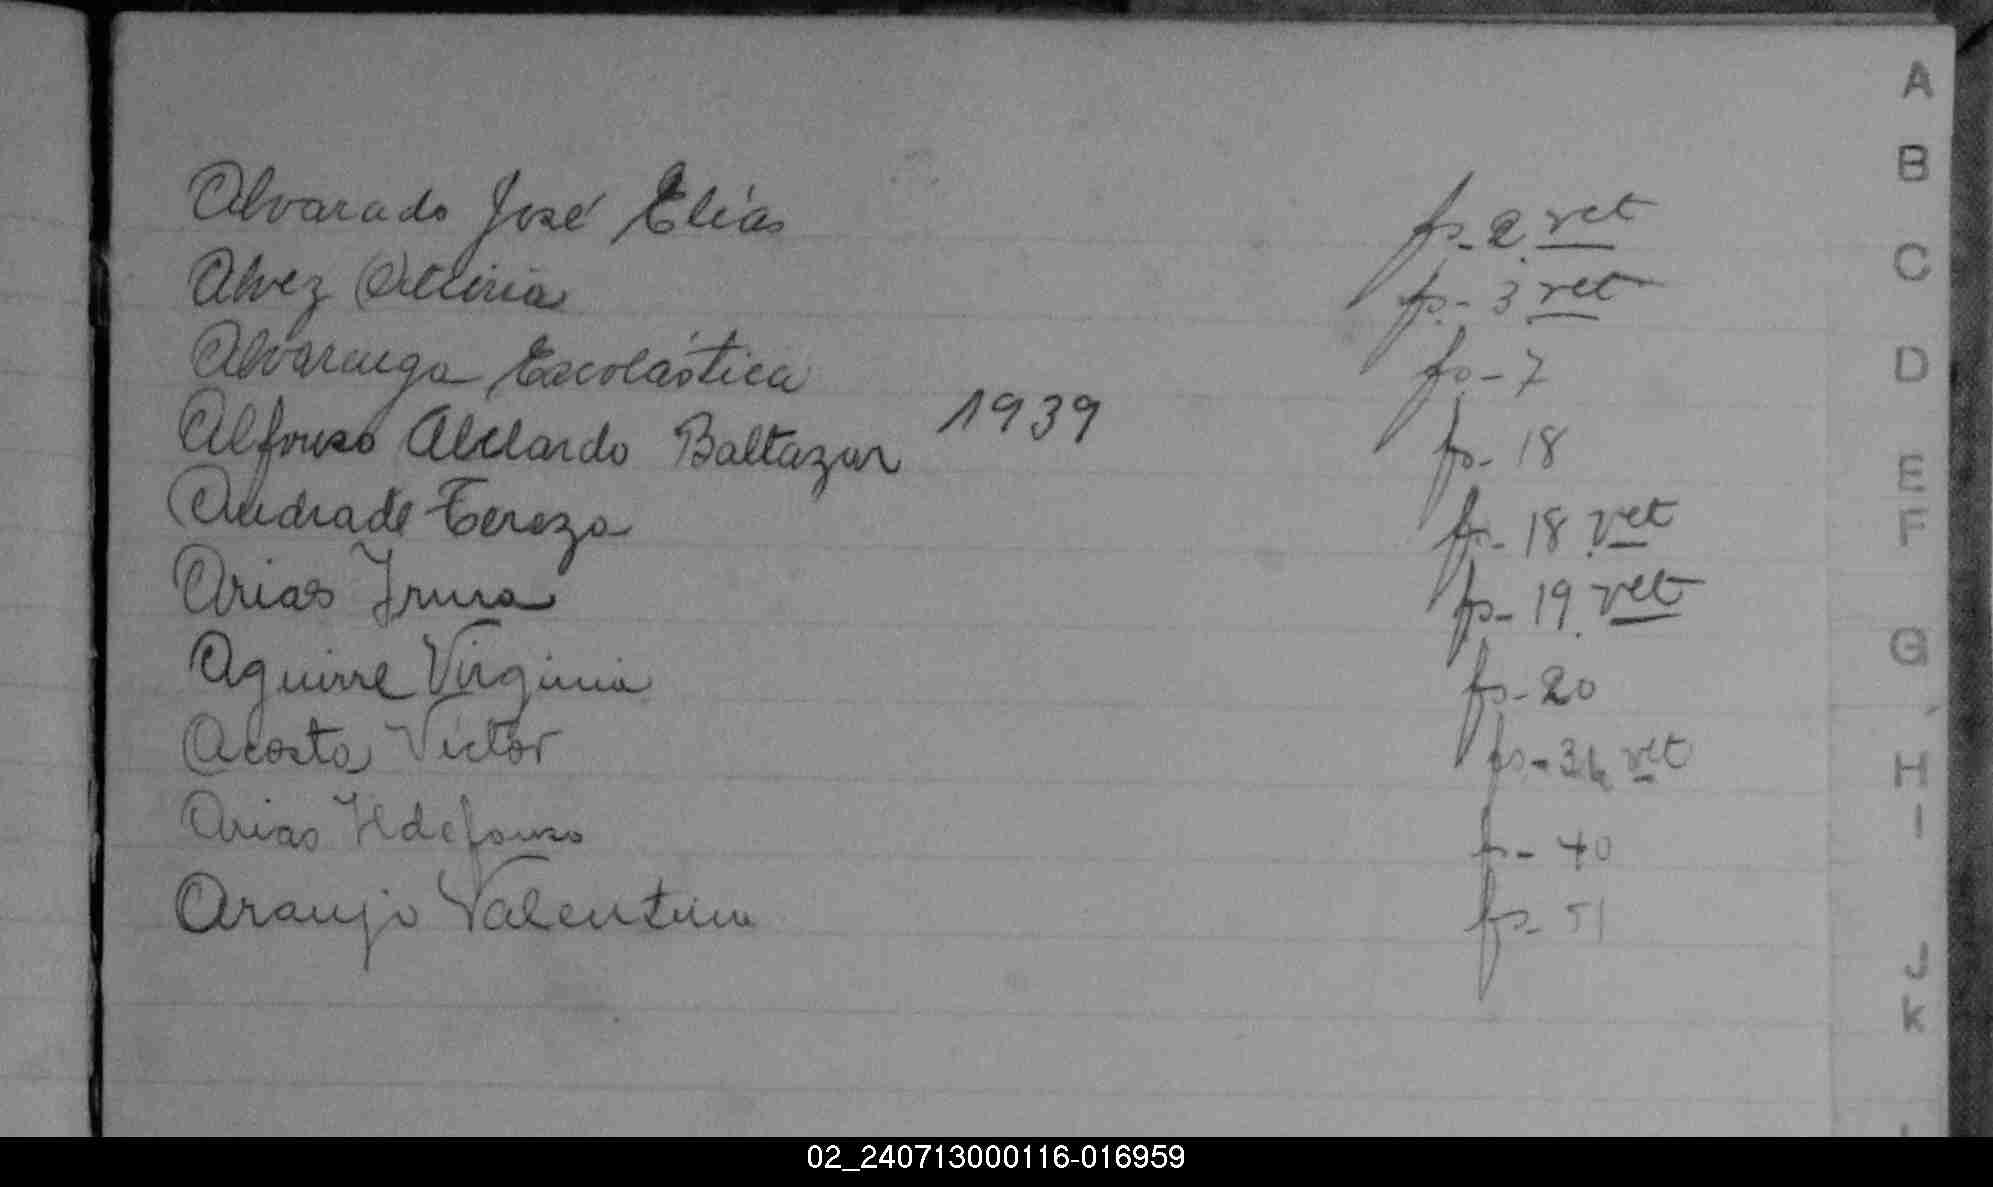 Alvarado José Elías fs-2 vct
Alvez Otilinia fs-3 vct
Alvarenga Escolástica fs-7
Alfonso Abelardo Baltazar 1939 fs-18
Andrade Tereza fs-18 vct
Arias Irma fs-19 vct
Aguirre Virginia fs-20
Acosta Victor fs-34 vct
Arias Ildefonso fs-40
Araujo Valentina fs-51
A
B
C
D
E
F
G
H
I
J
K
02_240713000116-016959